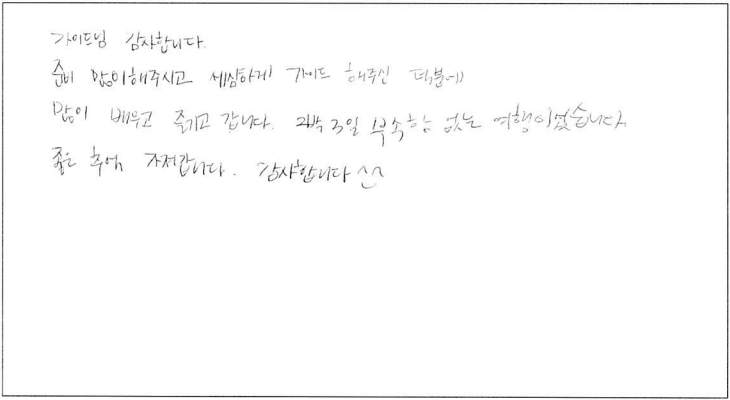 가이드님 감사합니다.
준비 많이해주시고 세심하게 가이드 해주신 덕분에
많이 배우고 즐기고 갑니다. 2박 3일 부족함 없는 여행이었습니다
좋은 추억 가져갑니다. 감사합니다 ^^